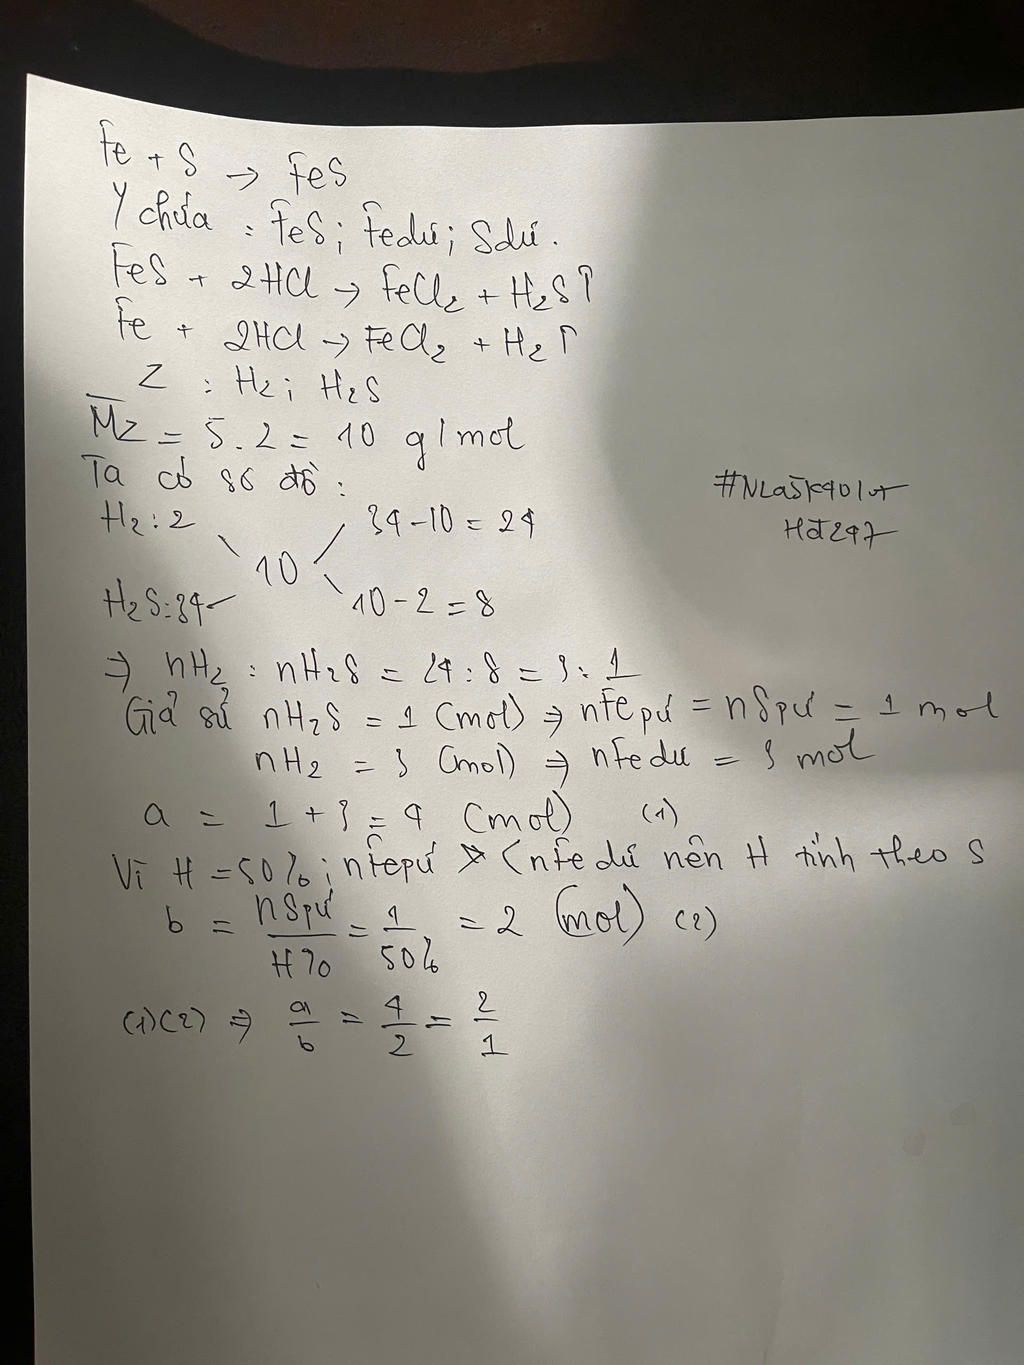 Fe + S → FeS
Y chứa : FeS; Fedư; Sdư.
FeS + 2HCl → FeCl₂ + H₂S↑
Fe + 2HCl → FeCl₂ + H₂↑
Z : H₂; H₂S
M̅z = 5.2 = 10 g/mol
Ta có sơ đồ:
H₂: 2 34-10 = 24
10
H₂S: 34 10-2 = 8
⇒ nH₂ : nH₂S = 24 : 8 = 3 : 1
Giả sử nH₂S = 1 (mol) ⇒ nFepứ = nSpứ = 1 mol
nH₂ = 3 (mol) ⇒ nFedư = 3 mol
a = 1 + 3 = 4 (mol) (1)
Vì H = 50%; nFepứ < nFedư nên H tính theo S
b = nSpứ/H% = 1/50% = 2 (mol) (2)
(1)(2) ⇒ a/b = 4/2 = 2/1